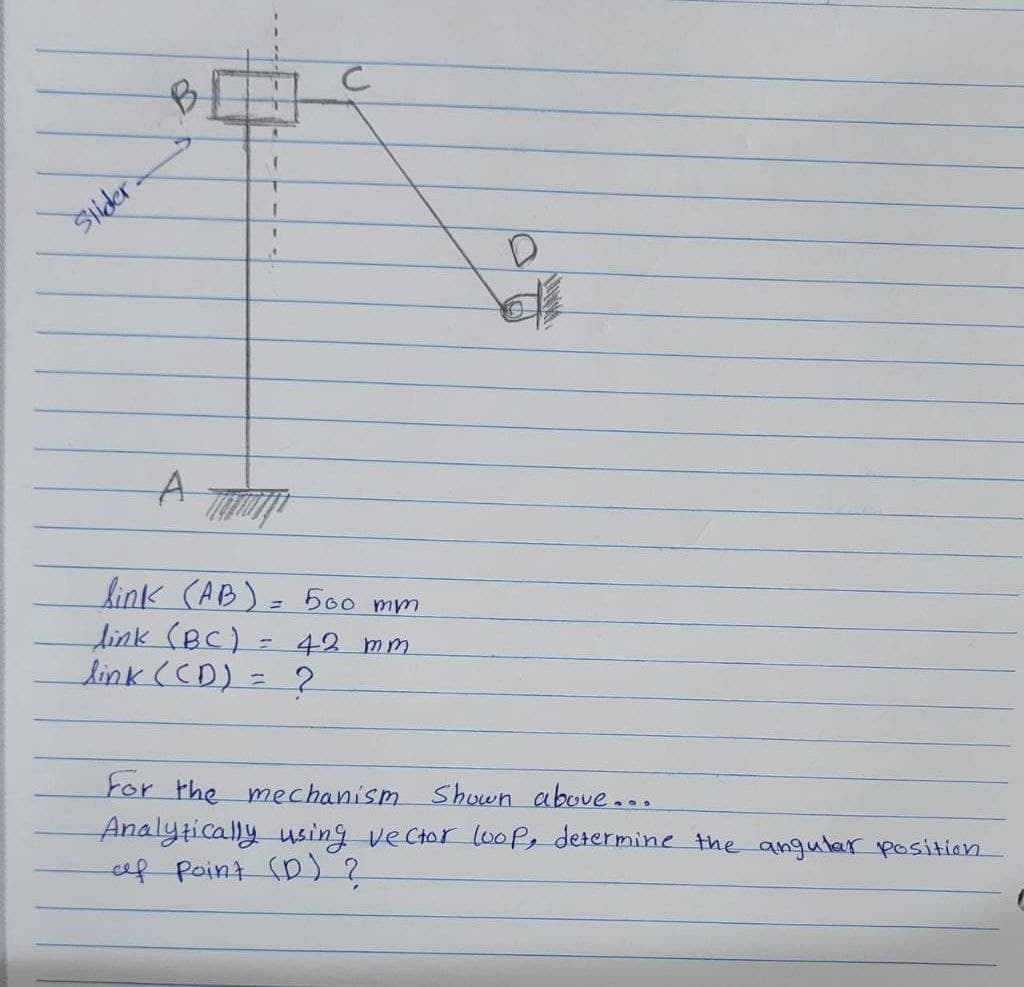 C
B
Slider
D
A
link (AB) = 500 mm
link (BC) = 42 mm
link (CD) = ?
For the mechanism shown above...
Analytically using vector loop, determine the angular position
of Point (D) ?